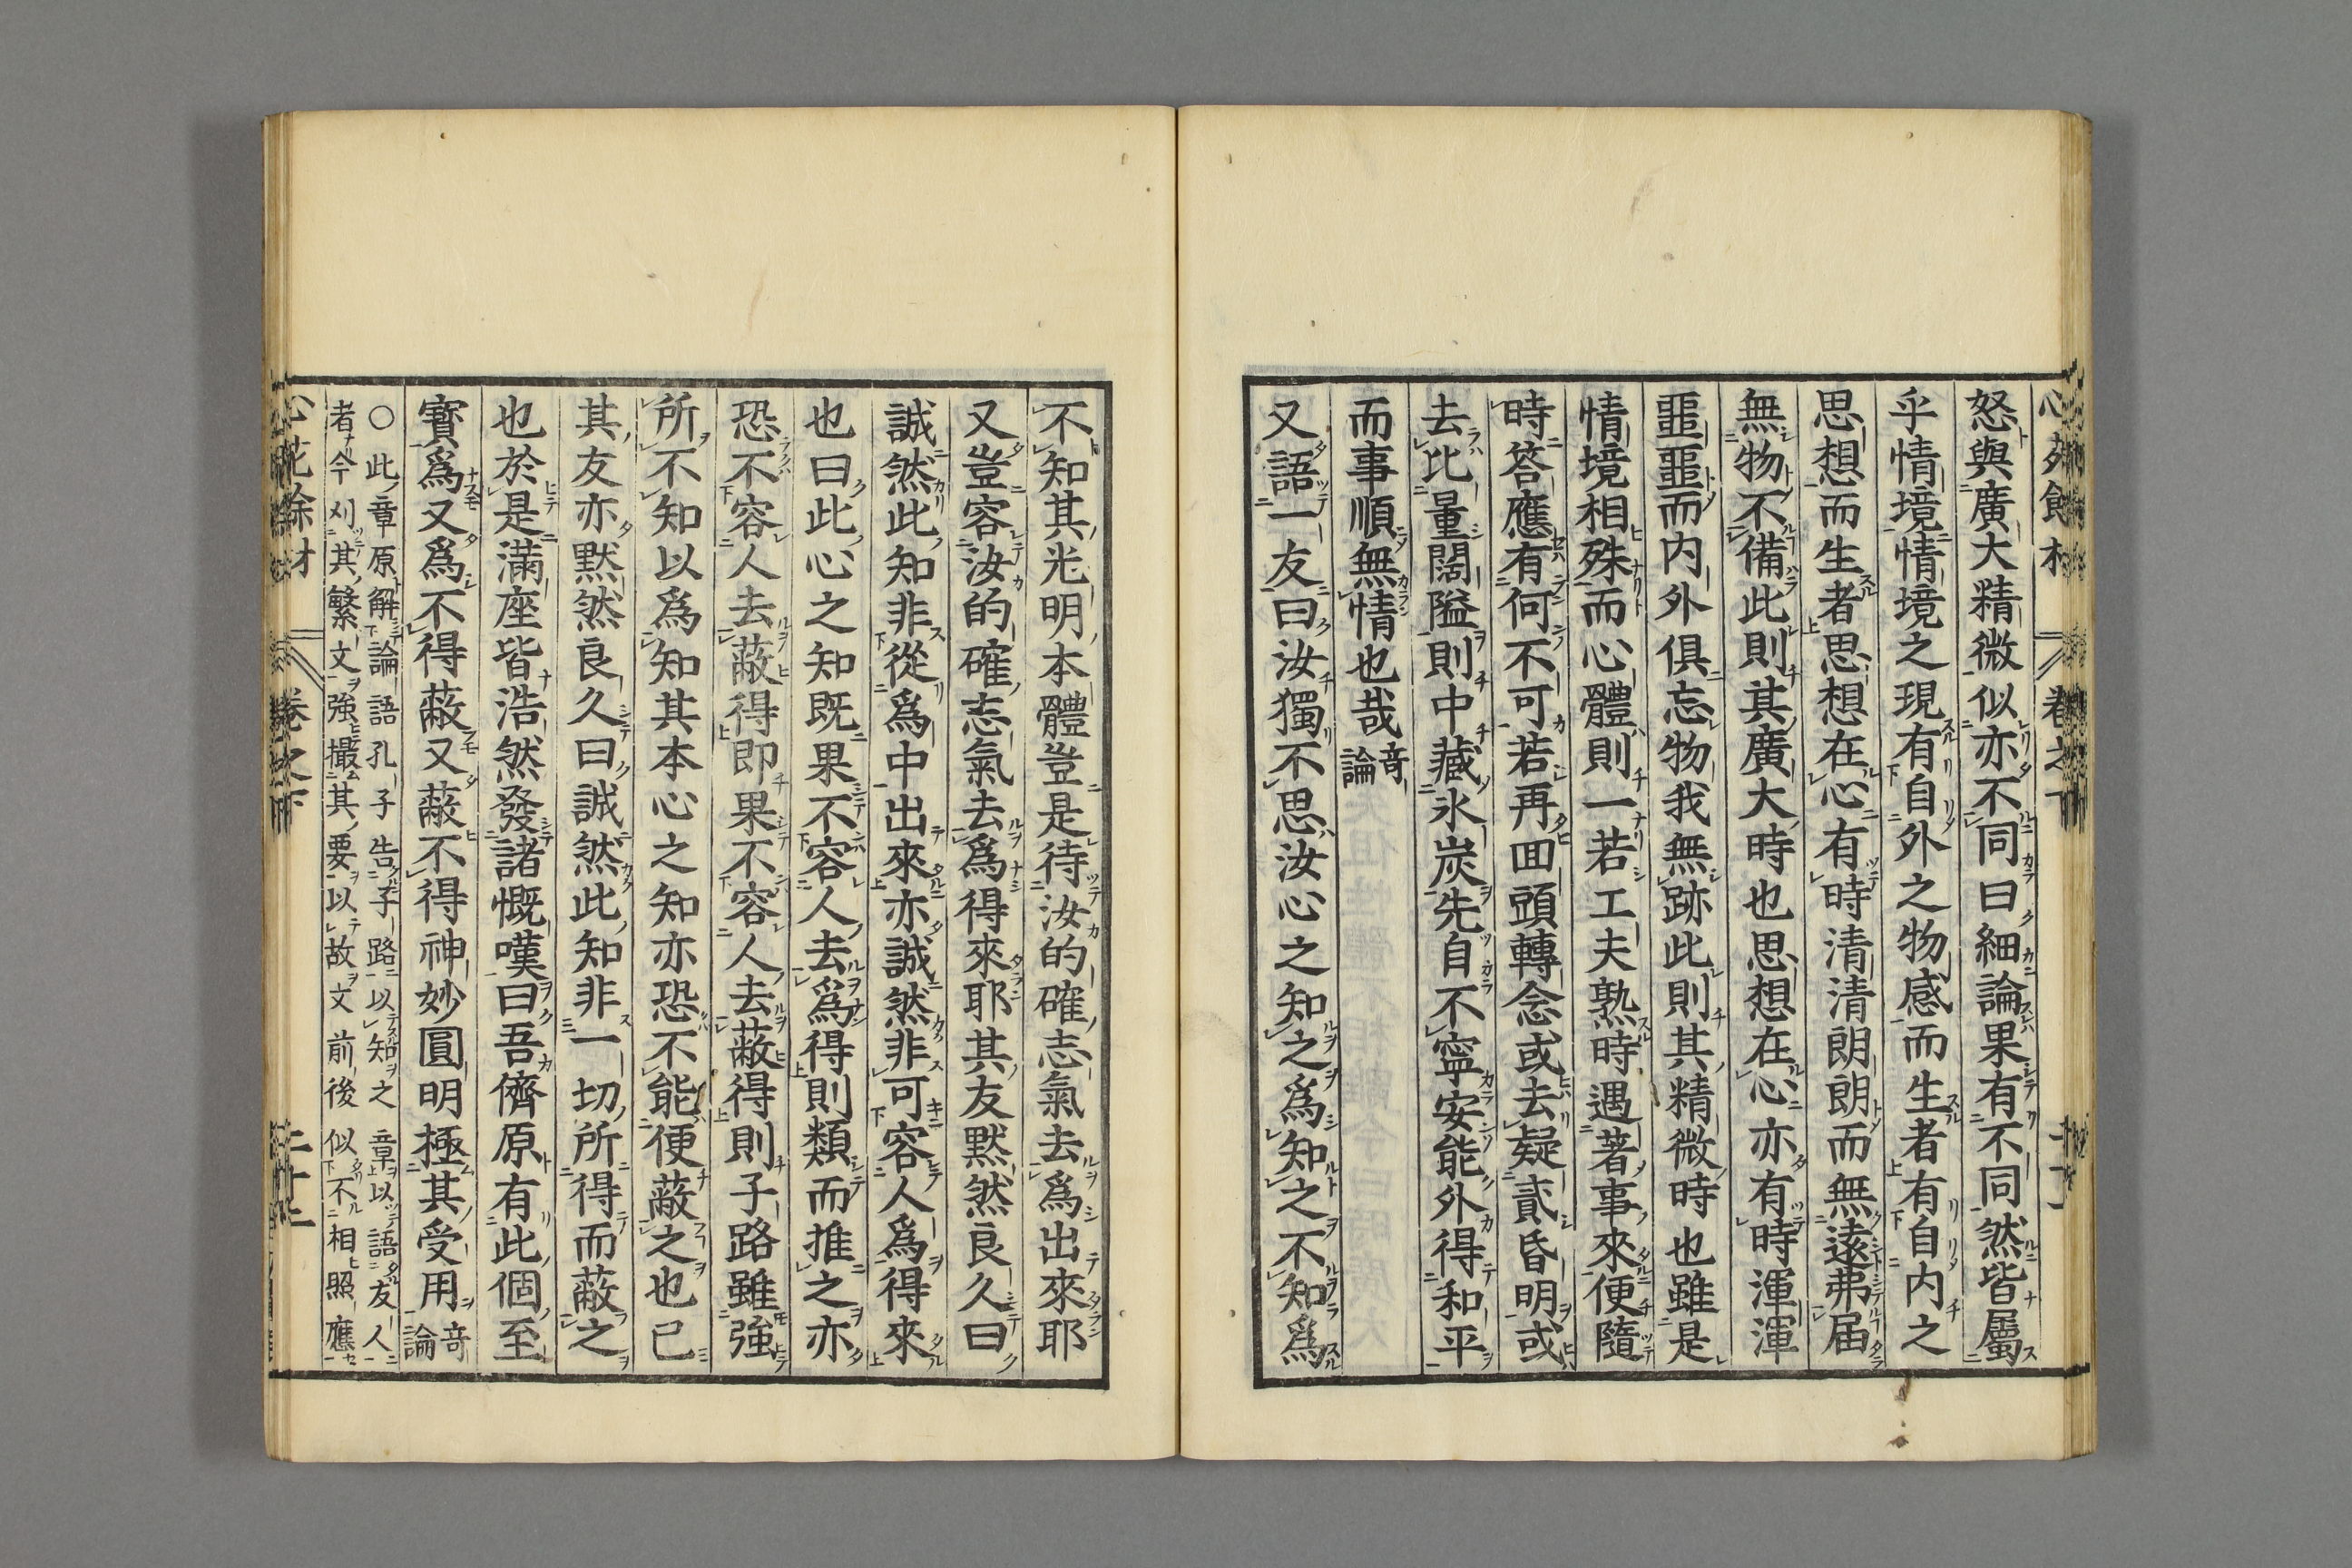 怒與廣大精微似亦不同曰細論果有不同然皆屬
乎情境情境之現有自外之物感而生者有自内之
思想而生者思想在心有時清清朗朗而無遠弗届
無物不備此則其廣大時也思想在心亦有時渾渾
噩噩而内外俱忘物我無跡此則其精微時也雖是
情境相殊而心體則一若工夫熟時遇著事來便隨
時答應有何不可若再回頭轉念或去疑貳昏明或
去比量闊隘則中藏氷炭先自不寧安能外得和平
而事順無情也哉 竒論
又語一友曰汝獨不思汝心之知之爲知之不知爲
不知其光明本體豈是待汝的確志氣去爲出來耶
又豈容汝的確志氣去爲得來耶其友黙然良久曰
誠然此知非從爲中出來亦誠然非可容人爲得來
也曰此心之知既果不容人去爲得則類而推之亦
恐不容人去蔽得即果不容人去蔽得則子路雖強
所不知以爲知其本心之知亦恐不能便蔽之也已
其友亦黙然良久曰誠然此知非一切所得而蔽之
也於是滿座皆浩然發諸慨嘆曰吾儕原有此個至
寳爲又爲不得蔽又蔽不得神妙圓明極其受用 竒論
〇此章原解論語孔子告子路以知之章以語友人
者今刈其繁文強撮其要以故文前後似不相照應
心花餘材 卷之下